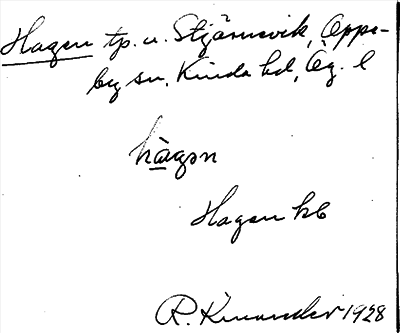 Hagen tp. u. Stjärnevik, Oppe-
by sn, Kinda hd, Ög. l
hagən
Hagen kb
R. Kinander 1928